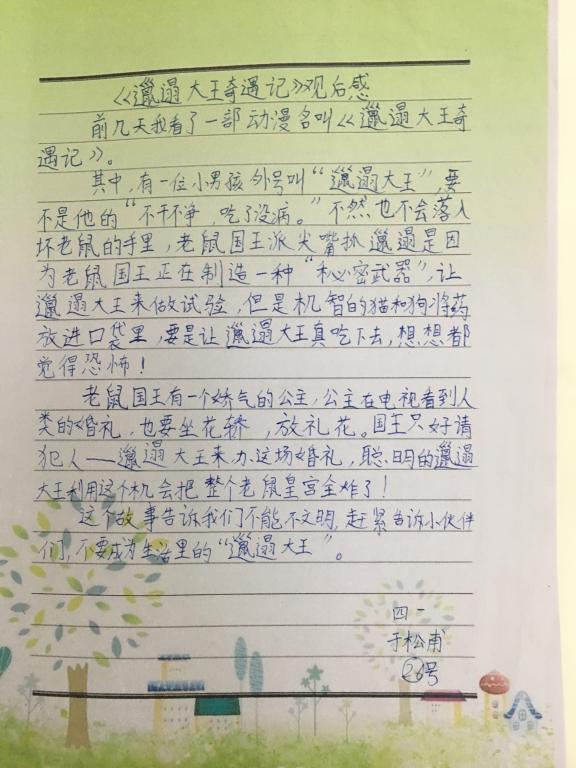 《邋遢大王奇遇记》观后感
前几天我看了一部动漫名叫《邋遢大王奇
遇记》。
其中,有一位小男孩外号叫“邋遢大王”,要
不是他的“不干不净,吃了没病。”不然也不会落入
坏老鼠的手里,老鼠国王派尖嘴抓邋遢是因
为老鼠国王正在制造一种“秘密武器”,让
邋遢大王来做试验,但是机智的猫和狗将药
放进口袋里,要是让邋遢大王真吃下去,想想都
觉得恐怖!
老鼠国王有一个娇气的公主,公主在电视看到人
类的婚礼,也要坐花轿,放礼花。国王只好请
犯人——邋遢大王来办这场婚礼,聪明的邋遢
大王利用这个机会把整个老鼠皇宫全炸了!
这个故事告诉我们不能不文明,赶紧告诉小伙伴
们,不要成为生活里的“邋遢大王”。
四一
于松甫
26号